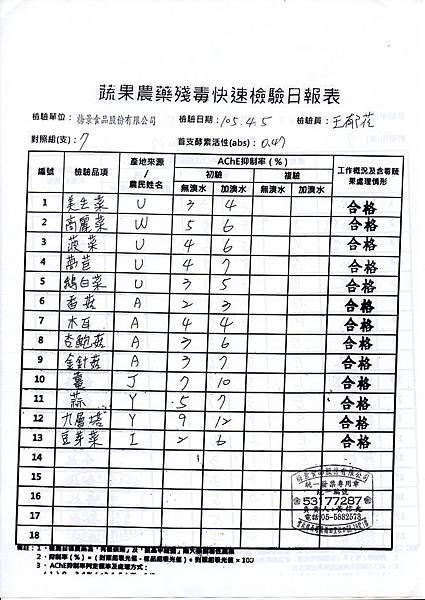 蔬果農藥殘毒快速檢驗日報表
檢驗單位：怡景食品股份有限公司 檢驗日期：105.4.5 檢驗員：王
對照組(支)：7 首支酵素活性(abs)：0.47
編號 檢驗品項 產地來源/農民姓名 AChE抑制率(%) 工作概況及含毒蔬果處理情形
初驗 複驗
無溴水 加溴水 無溴水 加溴水
1 美生菜 U 3 4 合格
2 高麗菜 W 5 6 合格
3 菠菜 U 4 6 合格
4 萵苣 U 4 7 合格
5 娃白菜 U 3 5 合格
6 香菇 A 2 3 合格
7 木耳 A 4 4 合格
8 杏鮑菇 A 3 6 合格
9 金針菇 A 3 7 合格
10 薑 J 7 10 合格
11 蒜 Y 5 7 合格
12 九層塔 Y 9 12 合格
13 豆芽菜 I 2 6 合格
14
15
16
17
18
怡景食品股份有限公司
統一發票專用章
統一編號
53177287
負責人：黃
電話：05-5882573
備註：1、
2、抑制率(%)＝(對照組吸光值－樣品組吸光值)÷對照組吸光值×100
3、AChE抑制率判定標準及處理方式：